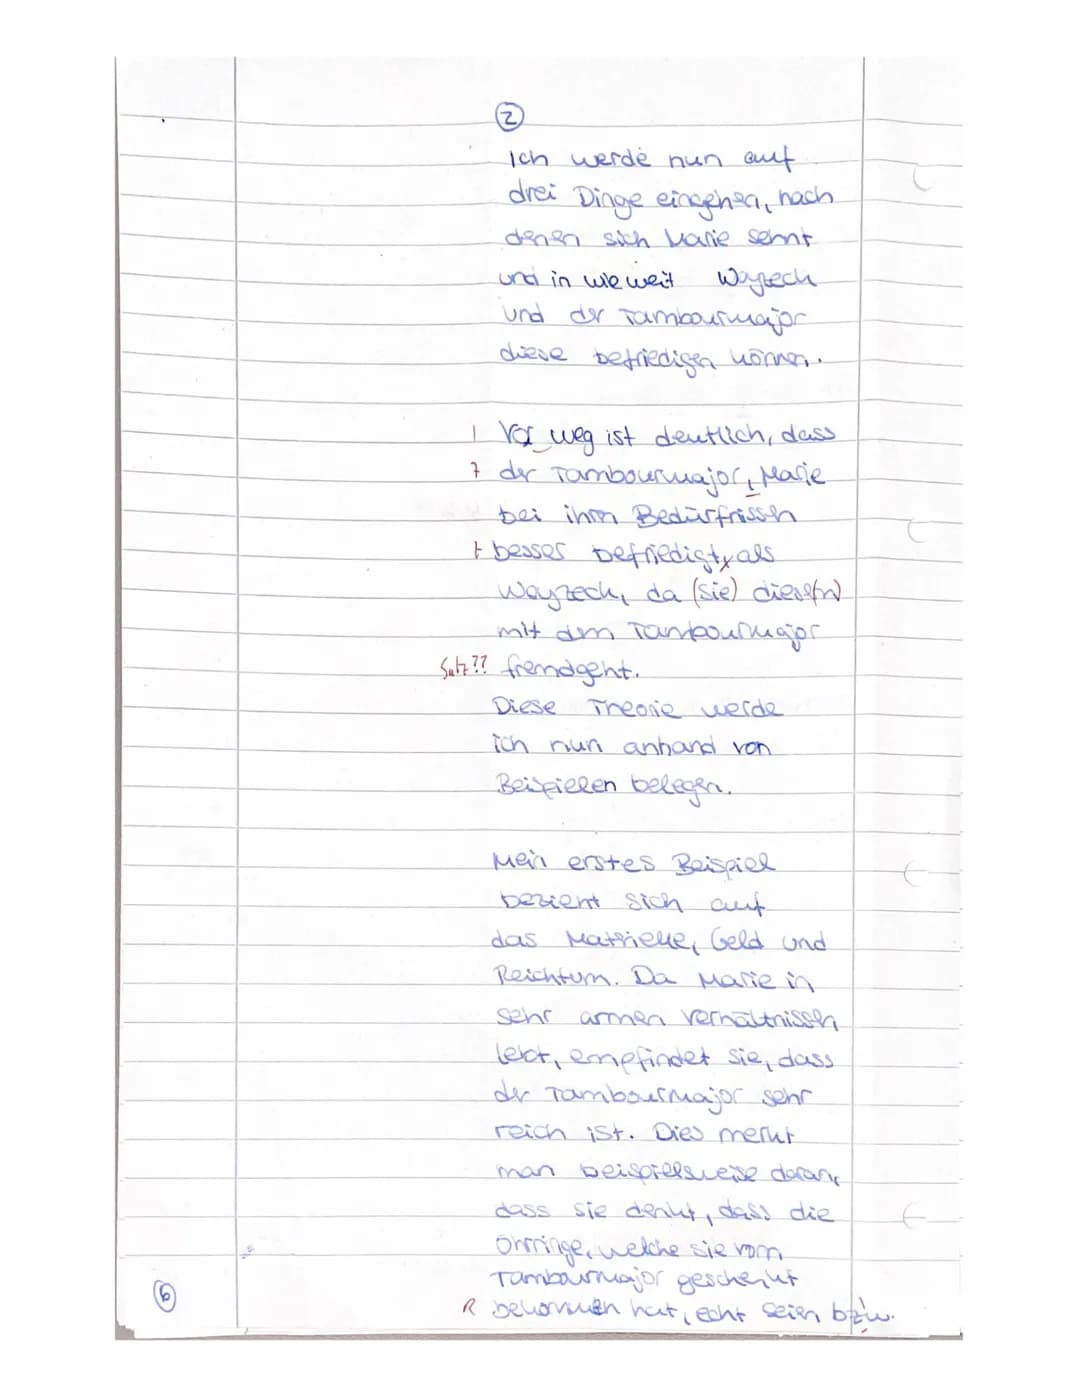 2
Ich werde nun auf
drei Dinge eingehen, nach
denen sich Marie sehnt
und in wie weit Woyzeck
und der Tambourmajor
diese befriedigen können.
I Vor weg ist deutlich, dass
7 der Tambourmajor, Marie
bei ihren Bedürfnissen
t besser befriedigt, als
Woyzeck, da (sie) diese(n)
mit dem Tambourmajor
Satz?? fremdgeht.
Diese Theorie werde
ich nun anhand von
Beispielen belegen.
Mein erstes Beispiel
bezieht sich auf
das Matrielle, Geld und
Reichtum. Da Marie in
sehr armen Verhältnissen
lebt, empfindet sie, dass
der Tambourmajor sehr
reich ist. Dies merkt
man beispielsweise daran,
dass sie denkt, dass die
Ohrringe, welche sie vom
Tambourmajor geschenkt
6
R bekommen hat, echt seien bzw.